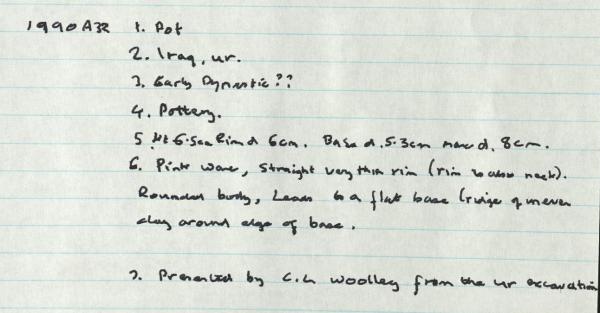 1990A32 1. Pot
2. Iraq, ur.
3. Early Dynastic??
4. Pottery.
5 Ht 6.5cm Rim d 6cm. Base d. 5.3cm max d. 8cm.
6. Pink ware, straight very thin rim (rim is also neck).
Rounded body, Leads to a flat base (ridge of uneven
clay around edge of base.
7. Presented by C.L Woolley from the ur excavation